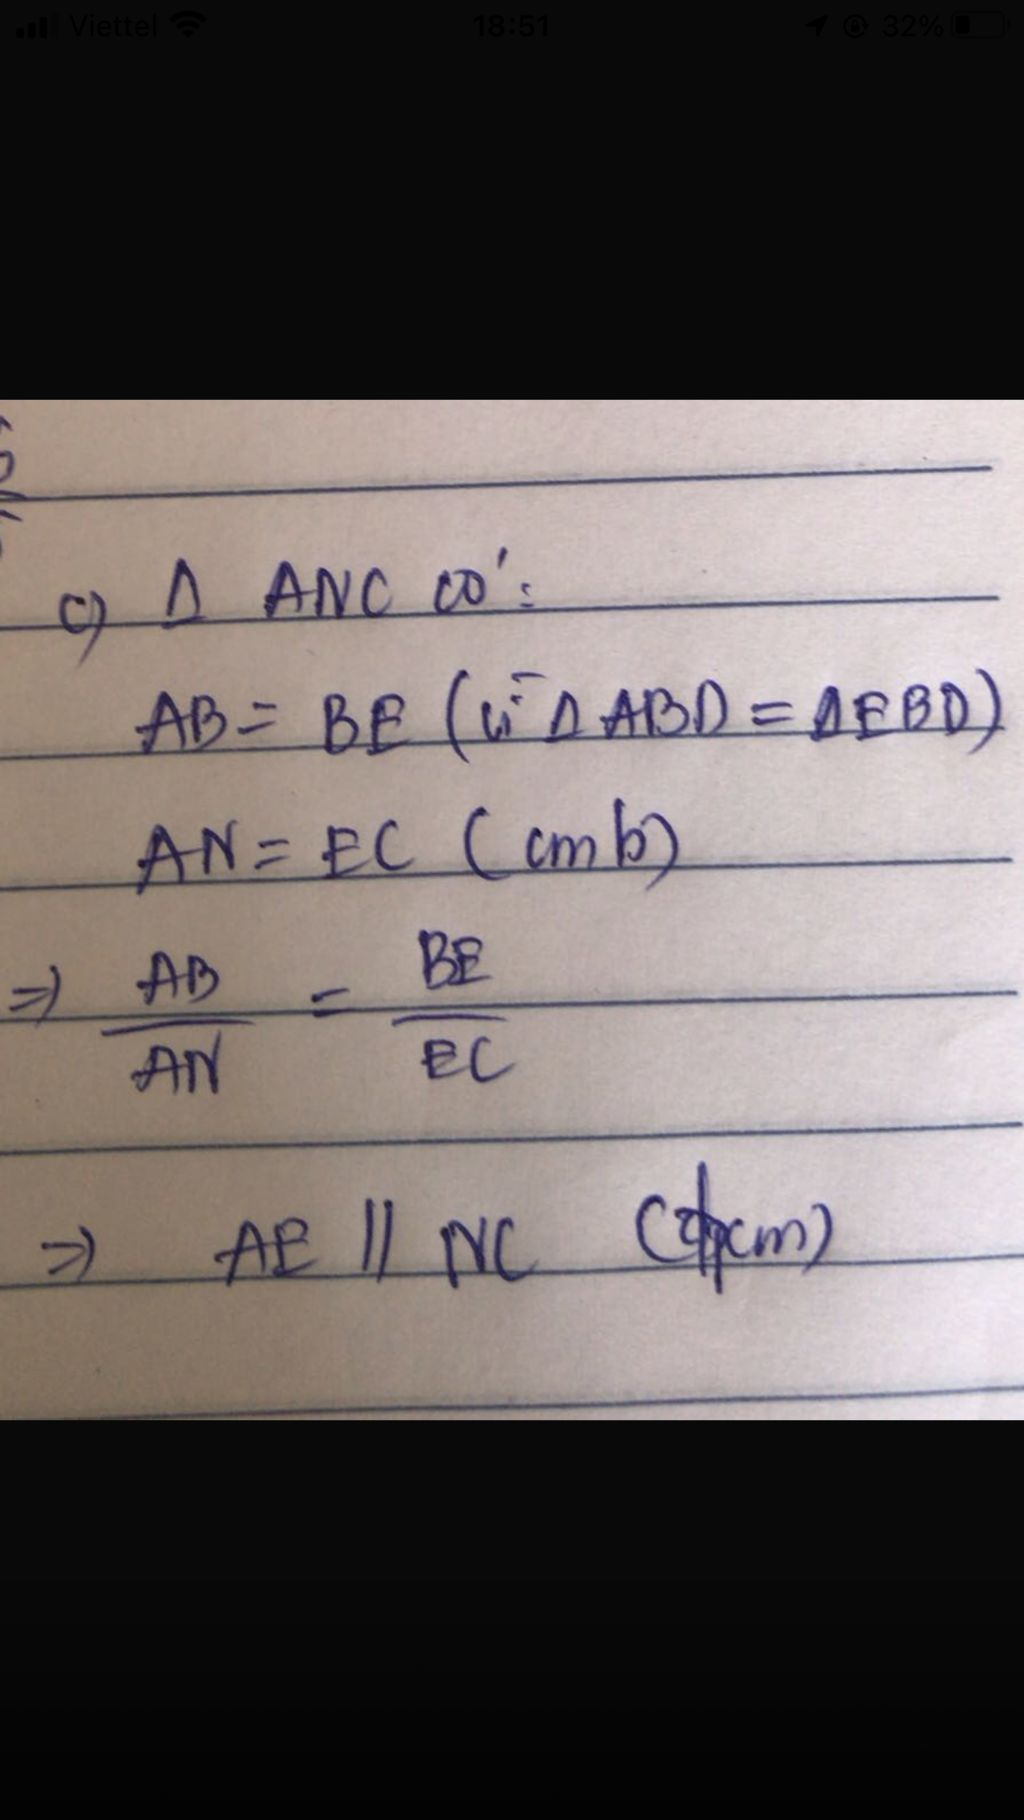 Viettel 18:51 32%
c) Δ ANC có:
AB = BE (vì Δ ABD = Δ EBD)
AN = EC (cmb)
=> AB/AN = BE/EC
=> AE // NC (đpcm)